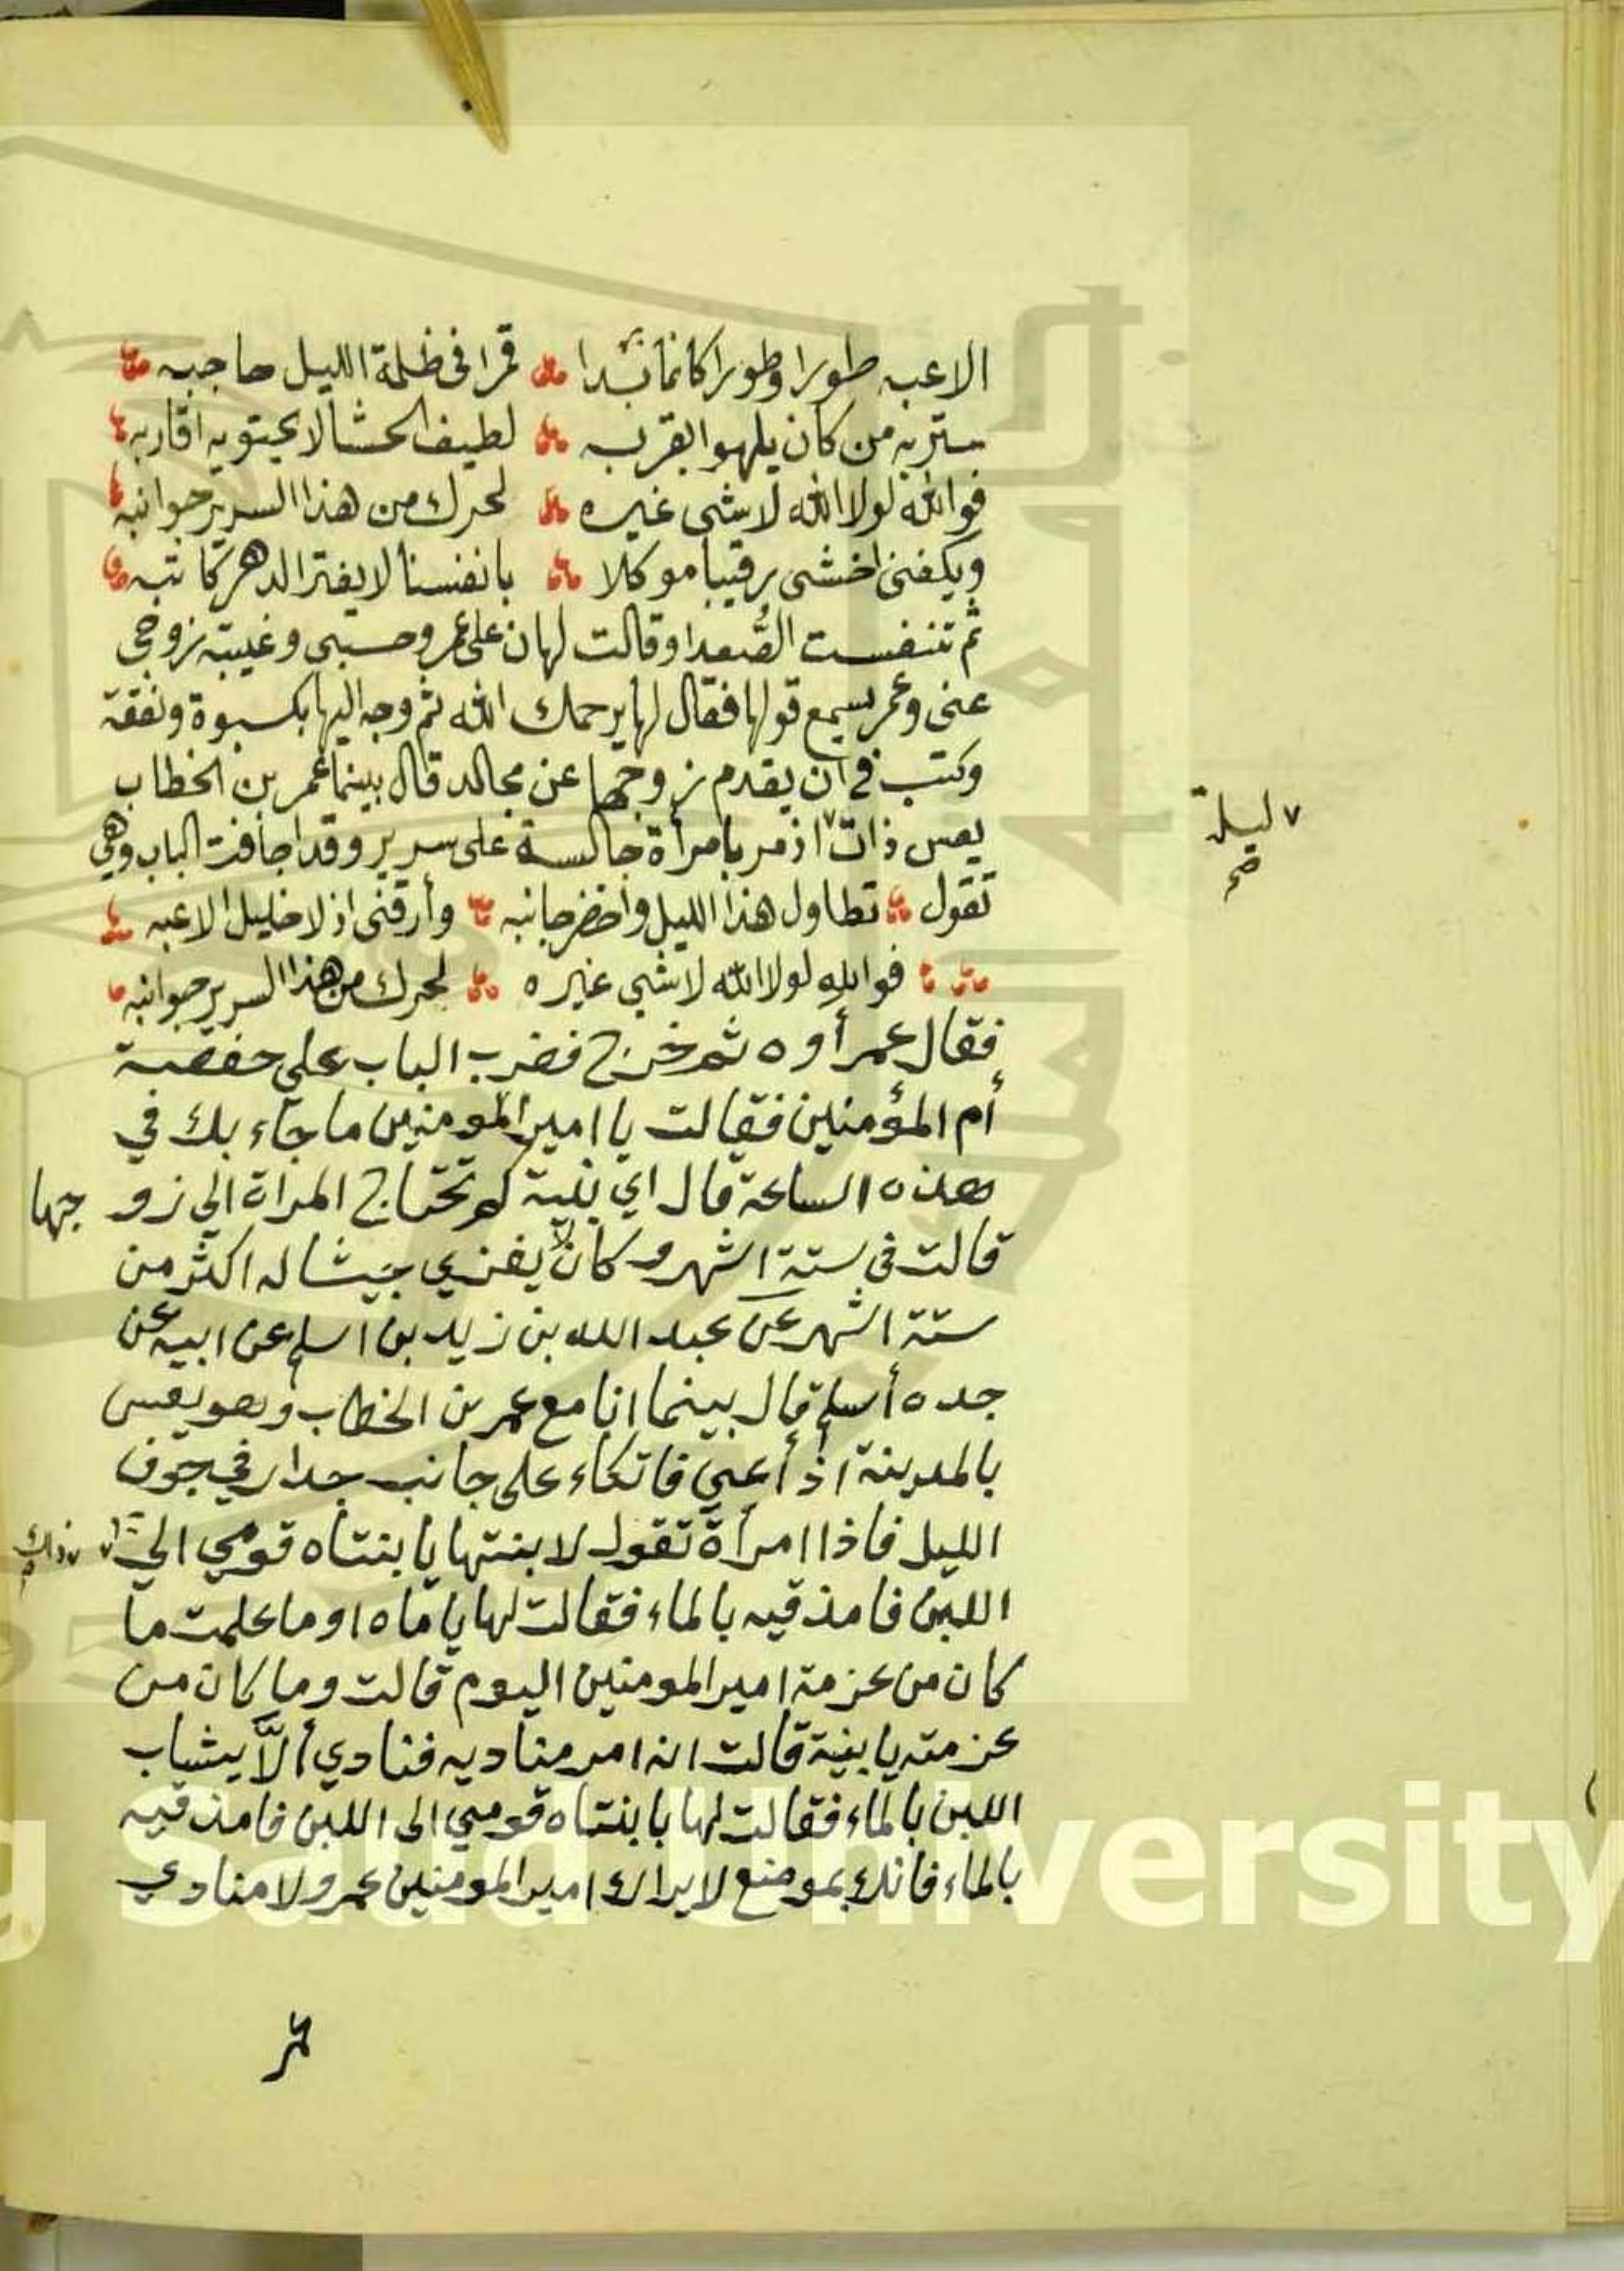 الاعبه طورا وطورا كانما بدا قمرا فى ظلمة الليل حاجبه
يستر به من كان يلهوا بقربه لطيف الحشا لا يحتويه اقاربه
فوالله لولا الله لا شى غيره لحرك من هذا السرير جوانبه
ويكفنى اخشى رقيبا موكلا بانفسنا لا يفتر الدهر كاتبه
ثم تنفست الصُّعدا وقالت لهان على عمر وحسبتى وغيبة زوجى
عنى وعمر يسمع قولها فقال لها يرحمك الله ثم وجه اليها بكسوة ونفقة
وكتب فى ان يقدم زوجها عن مجالد قال بينما عمر بن الخطاب
يعس ذات ٧ اذ مر بامرأة جالسة على سرير وقد اجافت الباب وهى
٧ ليلة
صح
تقول تطاول هذا الليل واخضر جانبه وأرقنى اذ لا خليل الاعبه
فوالله لولا الله لا شى غيره لحرك من هذا السرير جوانبه
فقال عمر أوه ثم خرج فضرب الباب على حفصة
أم المؤمنين فقالت يا امير المومنين ما جاء بك في
هذه الساعة قال اي بنية كم تحتاج المراة الي زوجها
قالت في ستة اشهر وكان لا يغزي جيشا له اكثر من
ستة اشهر عن عبد الله بن زيد بن اسلم عن ابيه عن
جده أسلم قال بينما انا مع عمر بن الخطاب وهو يعس
بالمدينة اذ أعيي فاتكاء على جانب جدار في جوف
الليل فاذا امرأة تقول لابنتها يا بنتاه قومي الي ٧
٧ ذلك
اللبن فامذقيه بالماء فقالت لها ياماه او ما علمت ما
كان من عزمة امير المومنين اليوم قالت وما كان من
عزمته يا بنية قالت انه امر مناديه فنادي ألاّ يشاب
اللبن بالماء فقالت لها يا بنتاه قومي الى اللبن فامذقيه
بالماء فانك بموضع لا يراك امير المومنين عمر ولا منادي
عمر
King Saud University